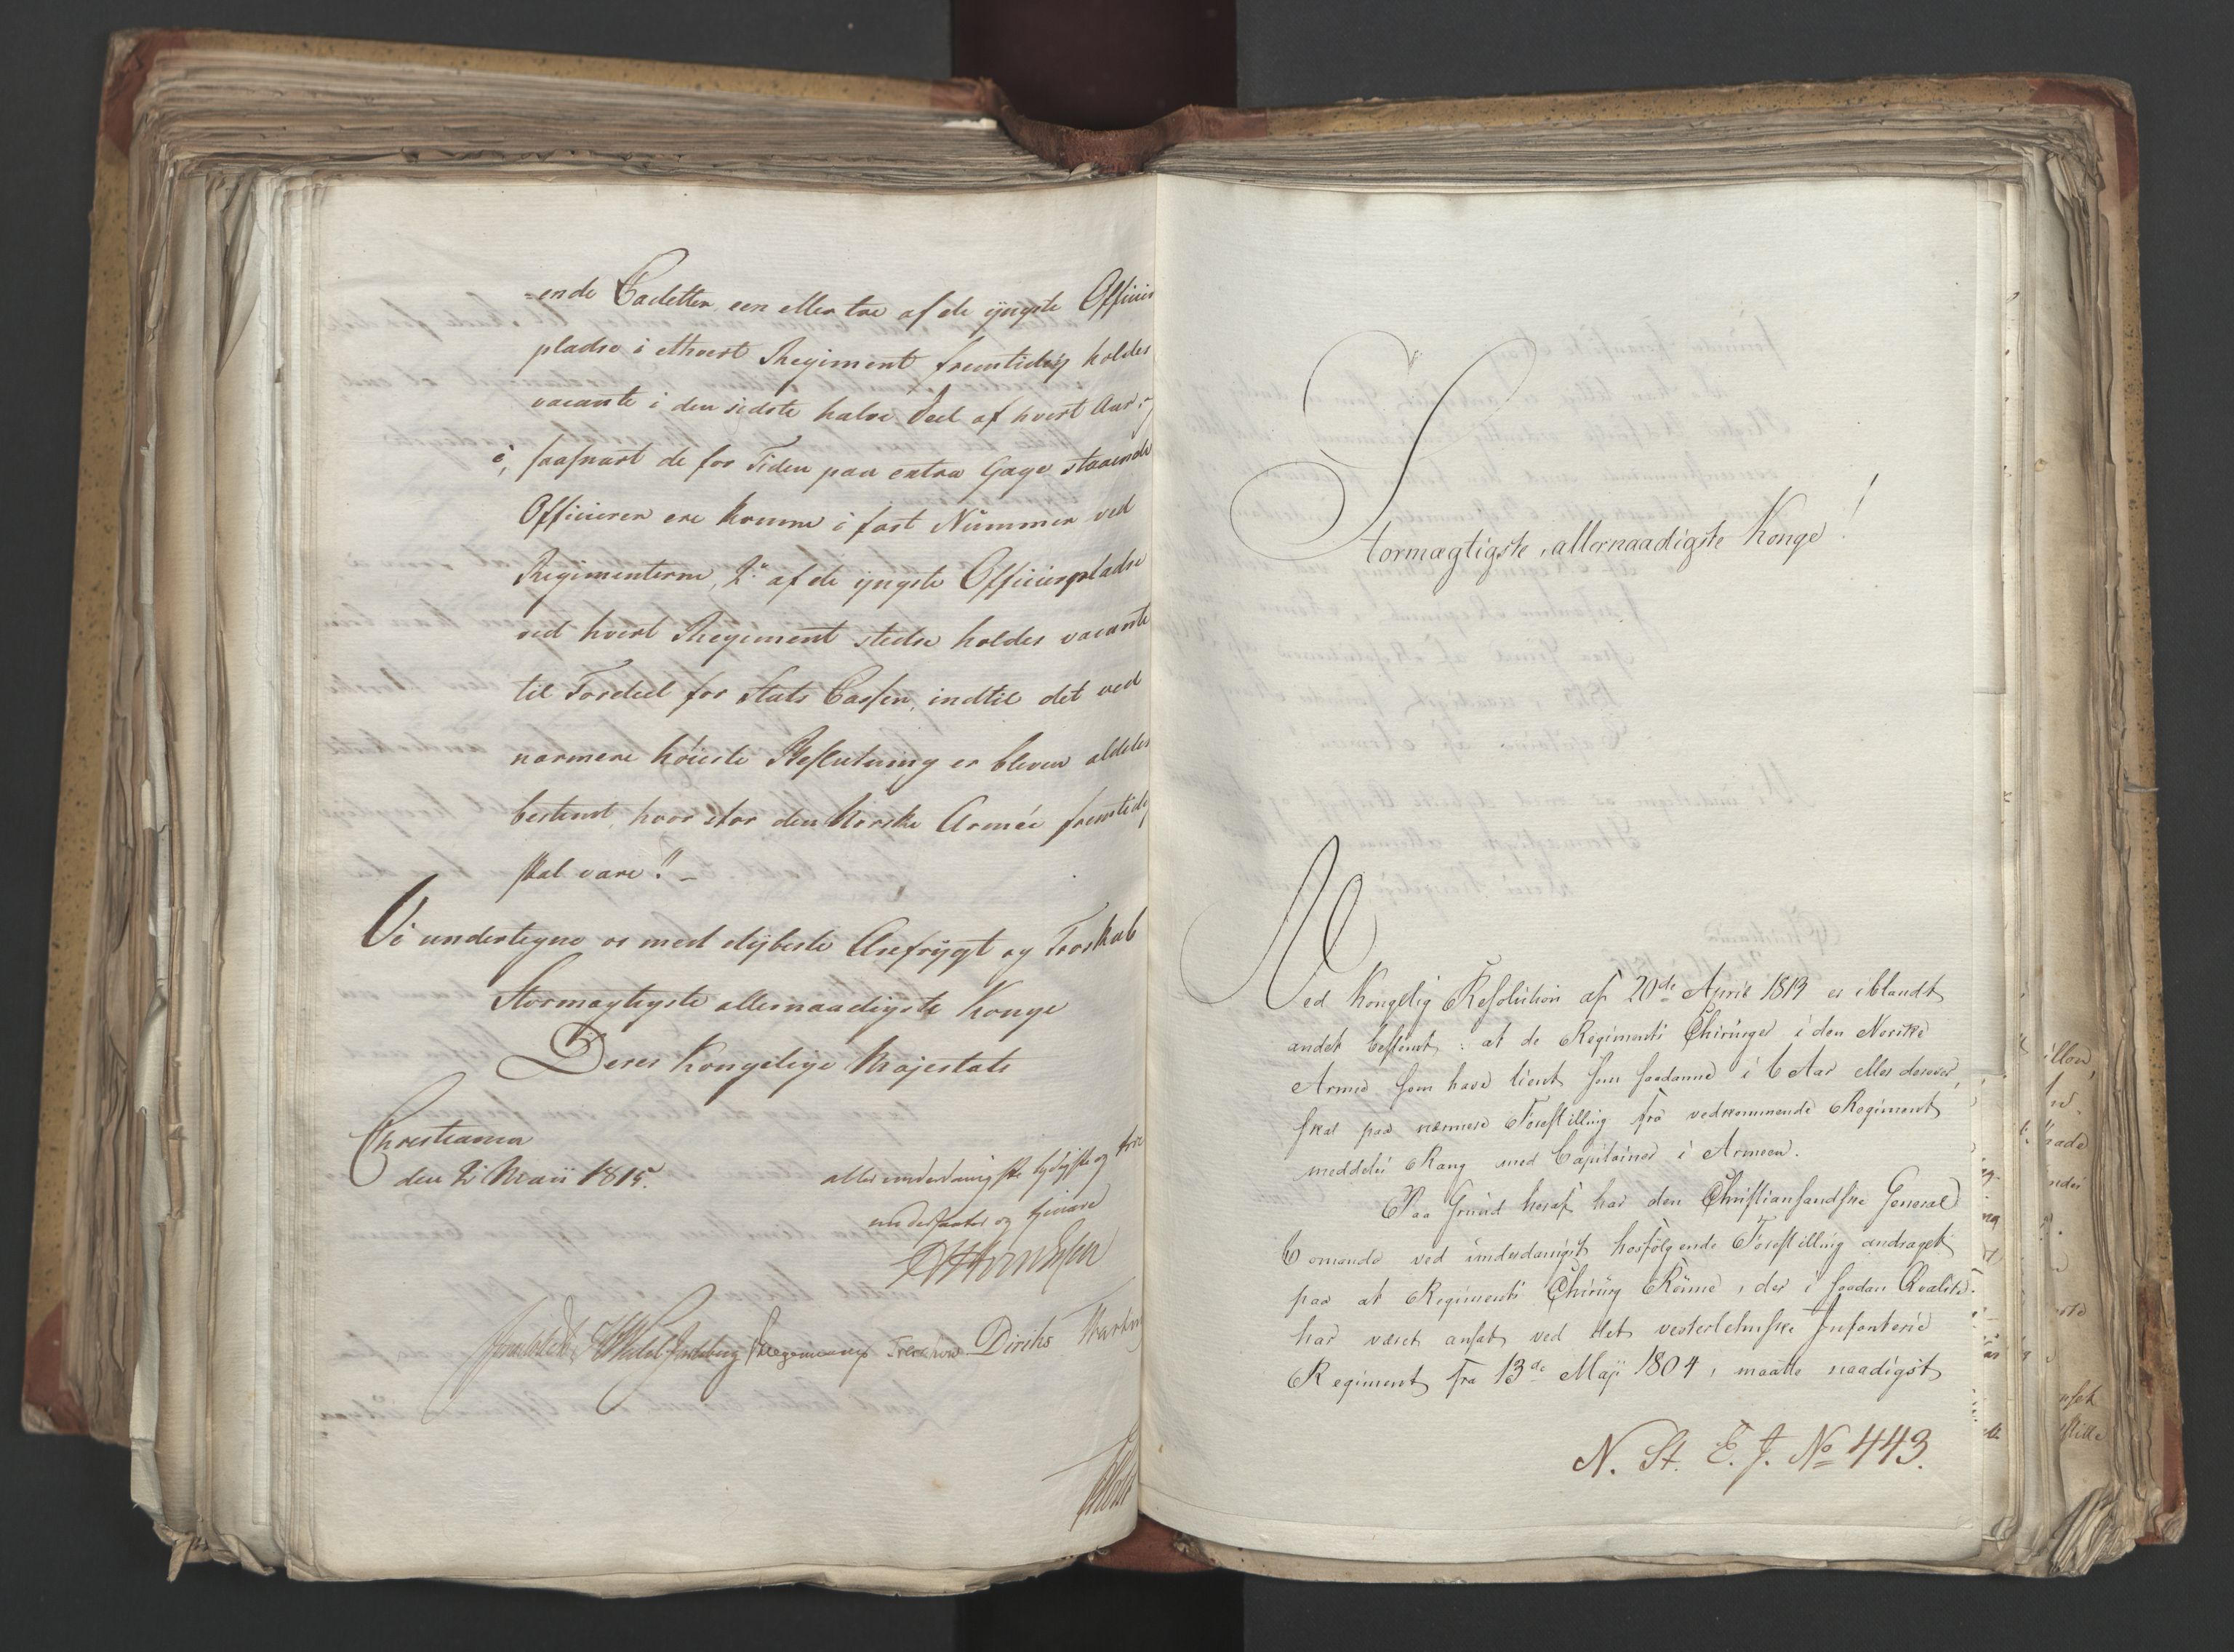 =ende Cadetter, een eller toe af de yngste Officiers
pladse i ethvert Regiment fremtidig holdes
vacante i den sidste halve Deel af hvert Aar og
saasnart de for Tiden paa extra Gage staaende
Officierer ere komne i fast Nummer ved
Regimenterne, 2de af de yngste Officierspladse
ved hvert Regiment stedse holdes vacante
til Fordeel for Stats Cassen, indtil det ved
nærmere høieste Beslutning er bleven aldeles
bestemt, hvor stor den Norske Armée fremtidig
skal være!! –
Vi undertegne os med dybeste Ærefrygt og Troskab
Stormægtigste allernaadigste Konge
Deres Kongelige Majestæts
Christiania
den 2 Maii 1815.
allerunderdanigste lydigste og troe
undersaatter og tjenere
Sommerhielm Krogh Diriks
Stormægtigste, allernaadigste Konge!
Ved Kongelig Resolution af 20de April 1813 er iblandt
andet bestemt: at de Regiments Chirurger i den Norske
Armee som have tient som saadanne i 6 Aar eller derover,
skal paa nærmere Forestilling fra vedkommende Regiment
meddeles Rang med Capitainer i Armeen.
Paa Grund heraf har den Christiansandske General
Comando ved underdanigst hosfølgende Forestilling andraget
paa at Regiments Chirurg Rønne, der i saadan Qvalité
har været ansat ved det vesterlehnske Infanterie
Regiment fra 13de Maji 1804, maatte naadigst
N. St. E. J. No 443.